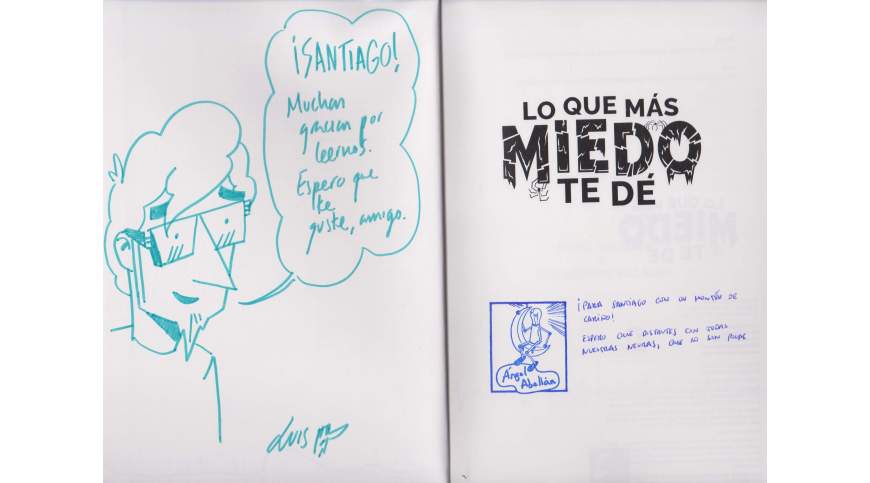 ¡SANTIAGO!
Muchas
gracias por
leernos.
Espero que
te
guste, amigo.
LUIS
LO QUE MÁS
MIEDO
TE DÉ
¡PARA SANTIAGO CON UN MONTÓN DE
CARIÑO!
ESPERO QUE DISFRUTES CON TODAS
NUESTRAS NEURAS, QUE NO SON POCAS
Ángel
Abellán